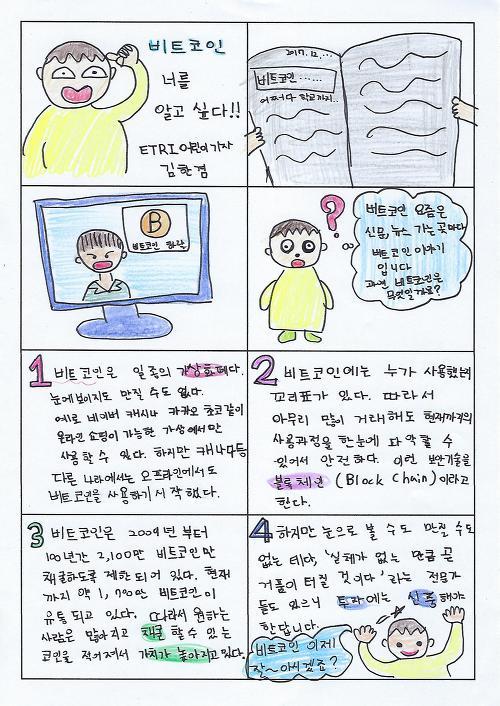 비트코인
너를
알고 싶다!!
ETRI 어린이기자
김한겸
2017.12....
비트코인......
어쩌다 학교까지..
B
비트코인
?
비트코인 요즘은
신문, 뉴스 가는 곳마다
비트코인 이야기
입니다
과연 비트코인은
무엇일까요?
1 비트코인은 일종의 가상화폐다.
눈에 보이지도 만질 수도 없다.
예로 네이버 캐시나 카카오 초코같이
온라인 쇼핑이 가능한 가상에서만
사용할 수 있다. 하지만 캐나다등
다른 나라에서는 오프라인에서도
비트코인을 사용하기 시작했다.
2 비트코인에는 누가 사용했는지
꼬리표가 있다. 따라서
아무리 많이 거래해도 현재까지의
사용과정을 한눈에 파악할 수
있어서 안전하다. 이런 보안기술을
블록체인 (Block Chain)이라고
한다.
3 비트코인은 2009년 부터
100년간 2,100만 비트코인만
채굴하도록 제한되어 있다. 현재
까지 약 1,700만 비트코인이
유통 되고 있다. 따라서 원하는
사람은 많아지고 채굴 할 수 있는
코인은 적어져서 가치가 높아지고 있다.
4 하지만 눈으로 볼 수도 만질 수도
없는 데다, '실체가 없는 만큼 곧
거품이 터질 것이다' 라는 전문가
들도 있으니 투자에는 신중해야
한답니다.
비트코인 이제
잘~ 아시겠죠?